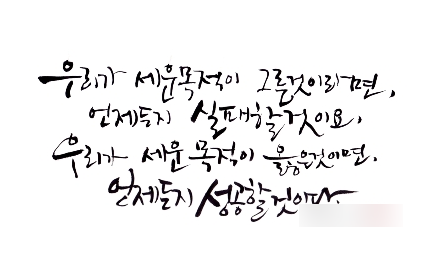 우리가 세운목적이 그른것이라면,
언제든지 실패할것이요,
우리가 세운 목적이 옳은것이면,
언제든지 성공할것이다.